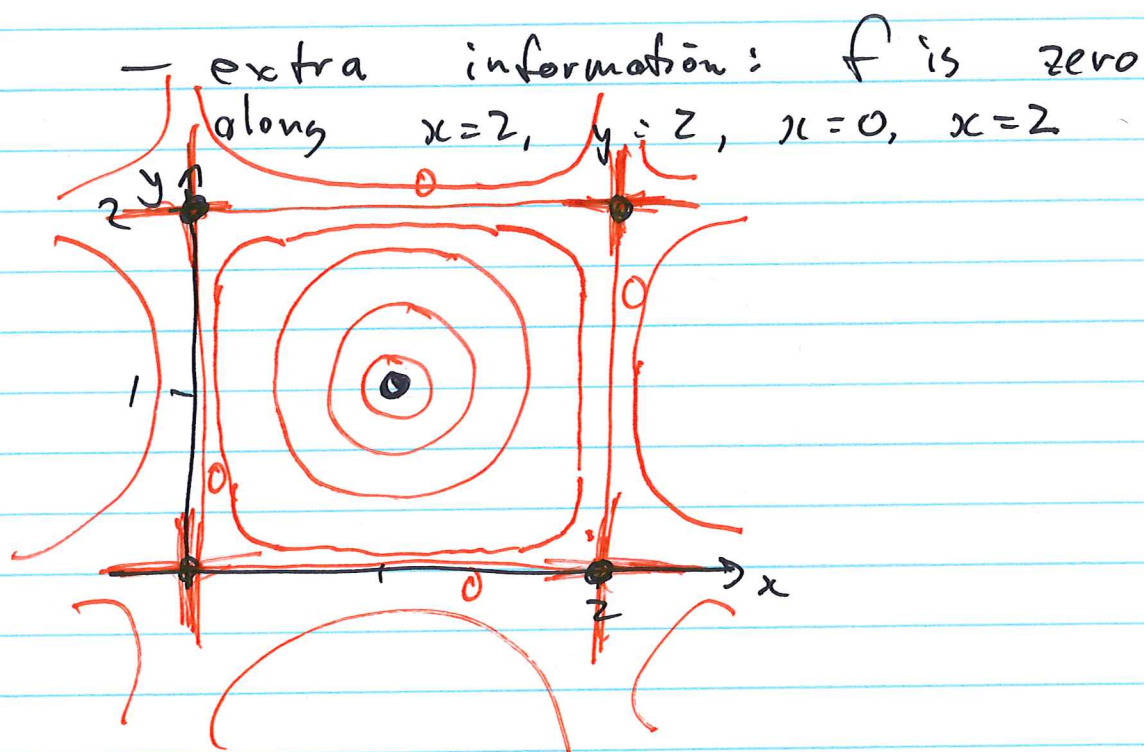 – extra information: f is zero
along x=2, y=2, x=0, x=2
0
y
2
0
1
0
0
x
2